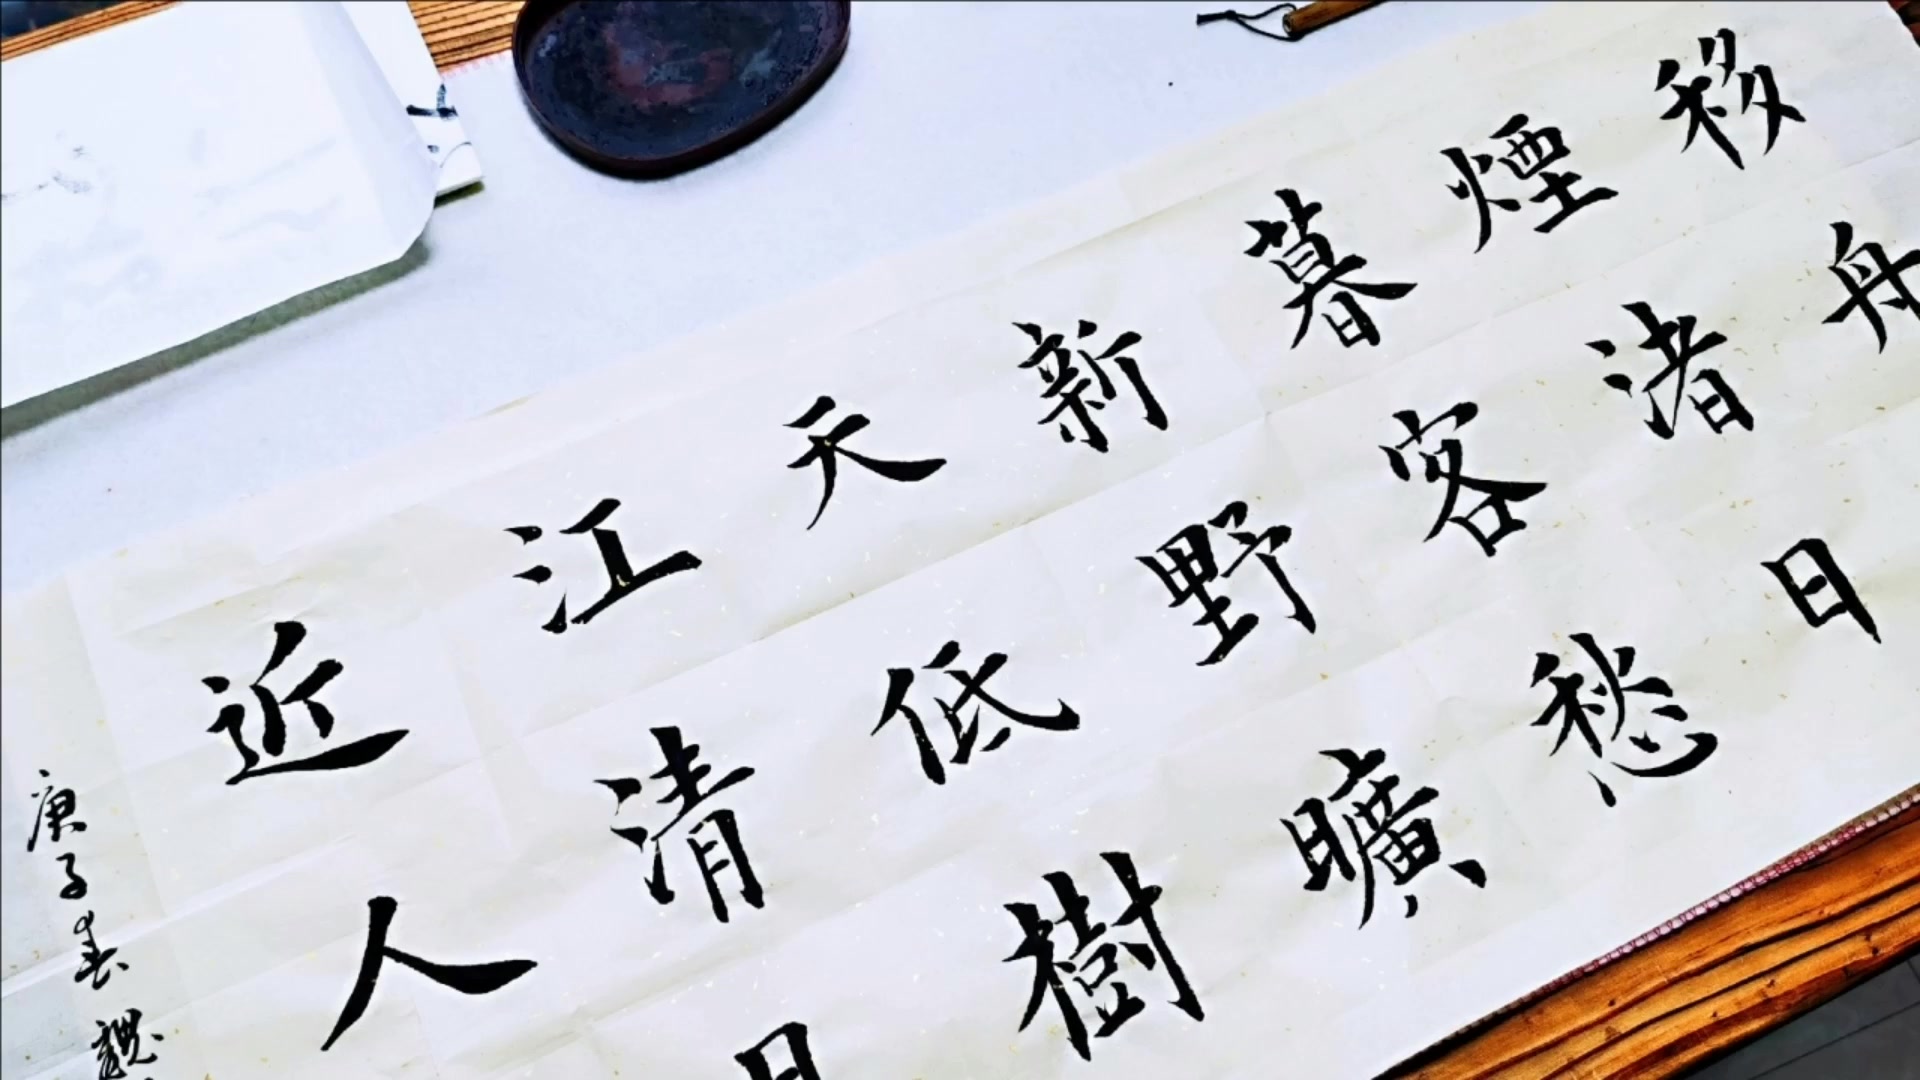 移舟
煙渚日
暮客愁
新野曠
天低樹
江清月
近人
庚子春